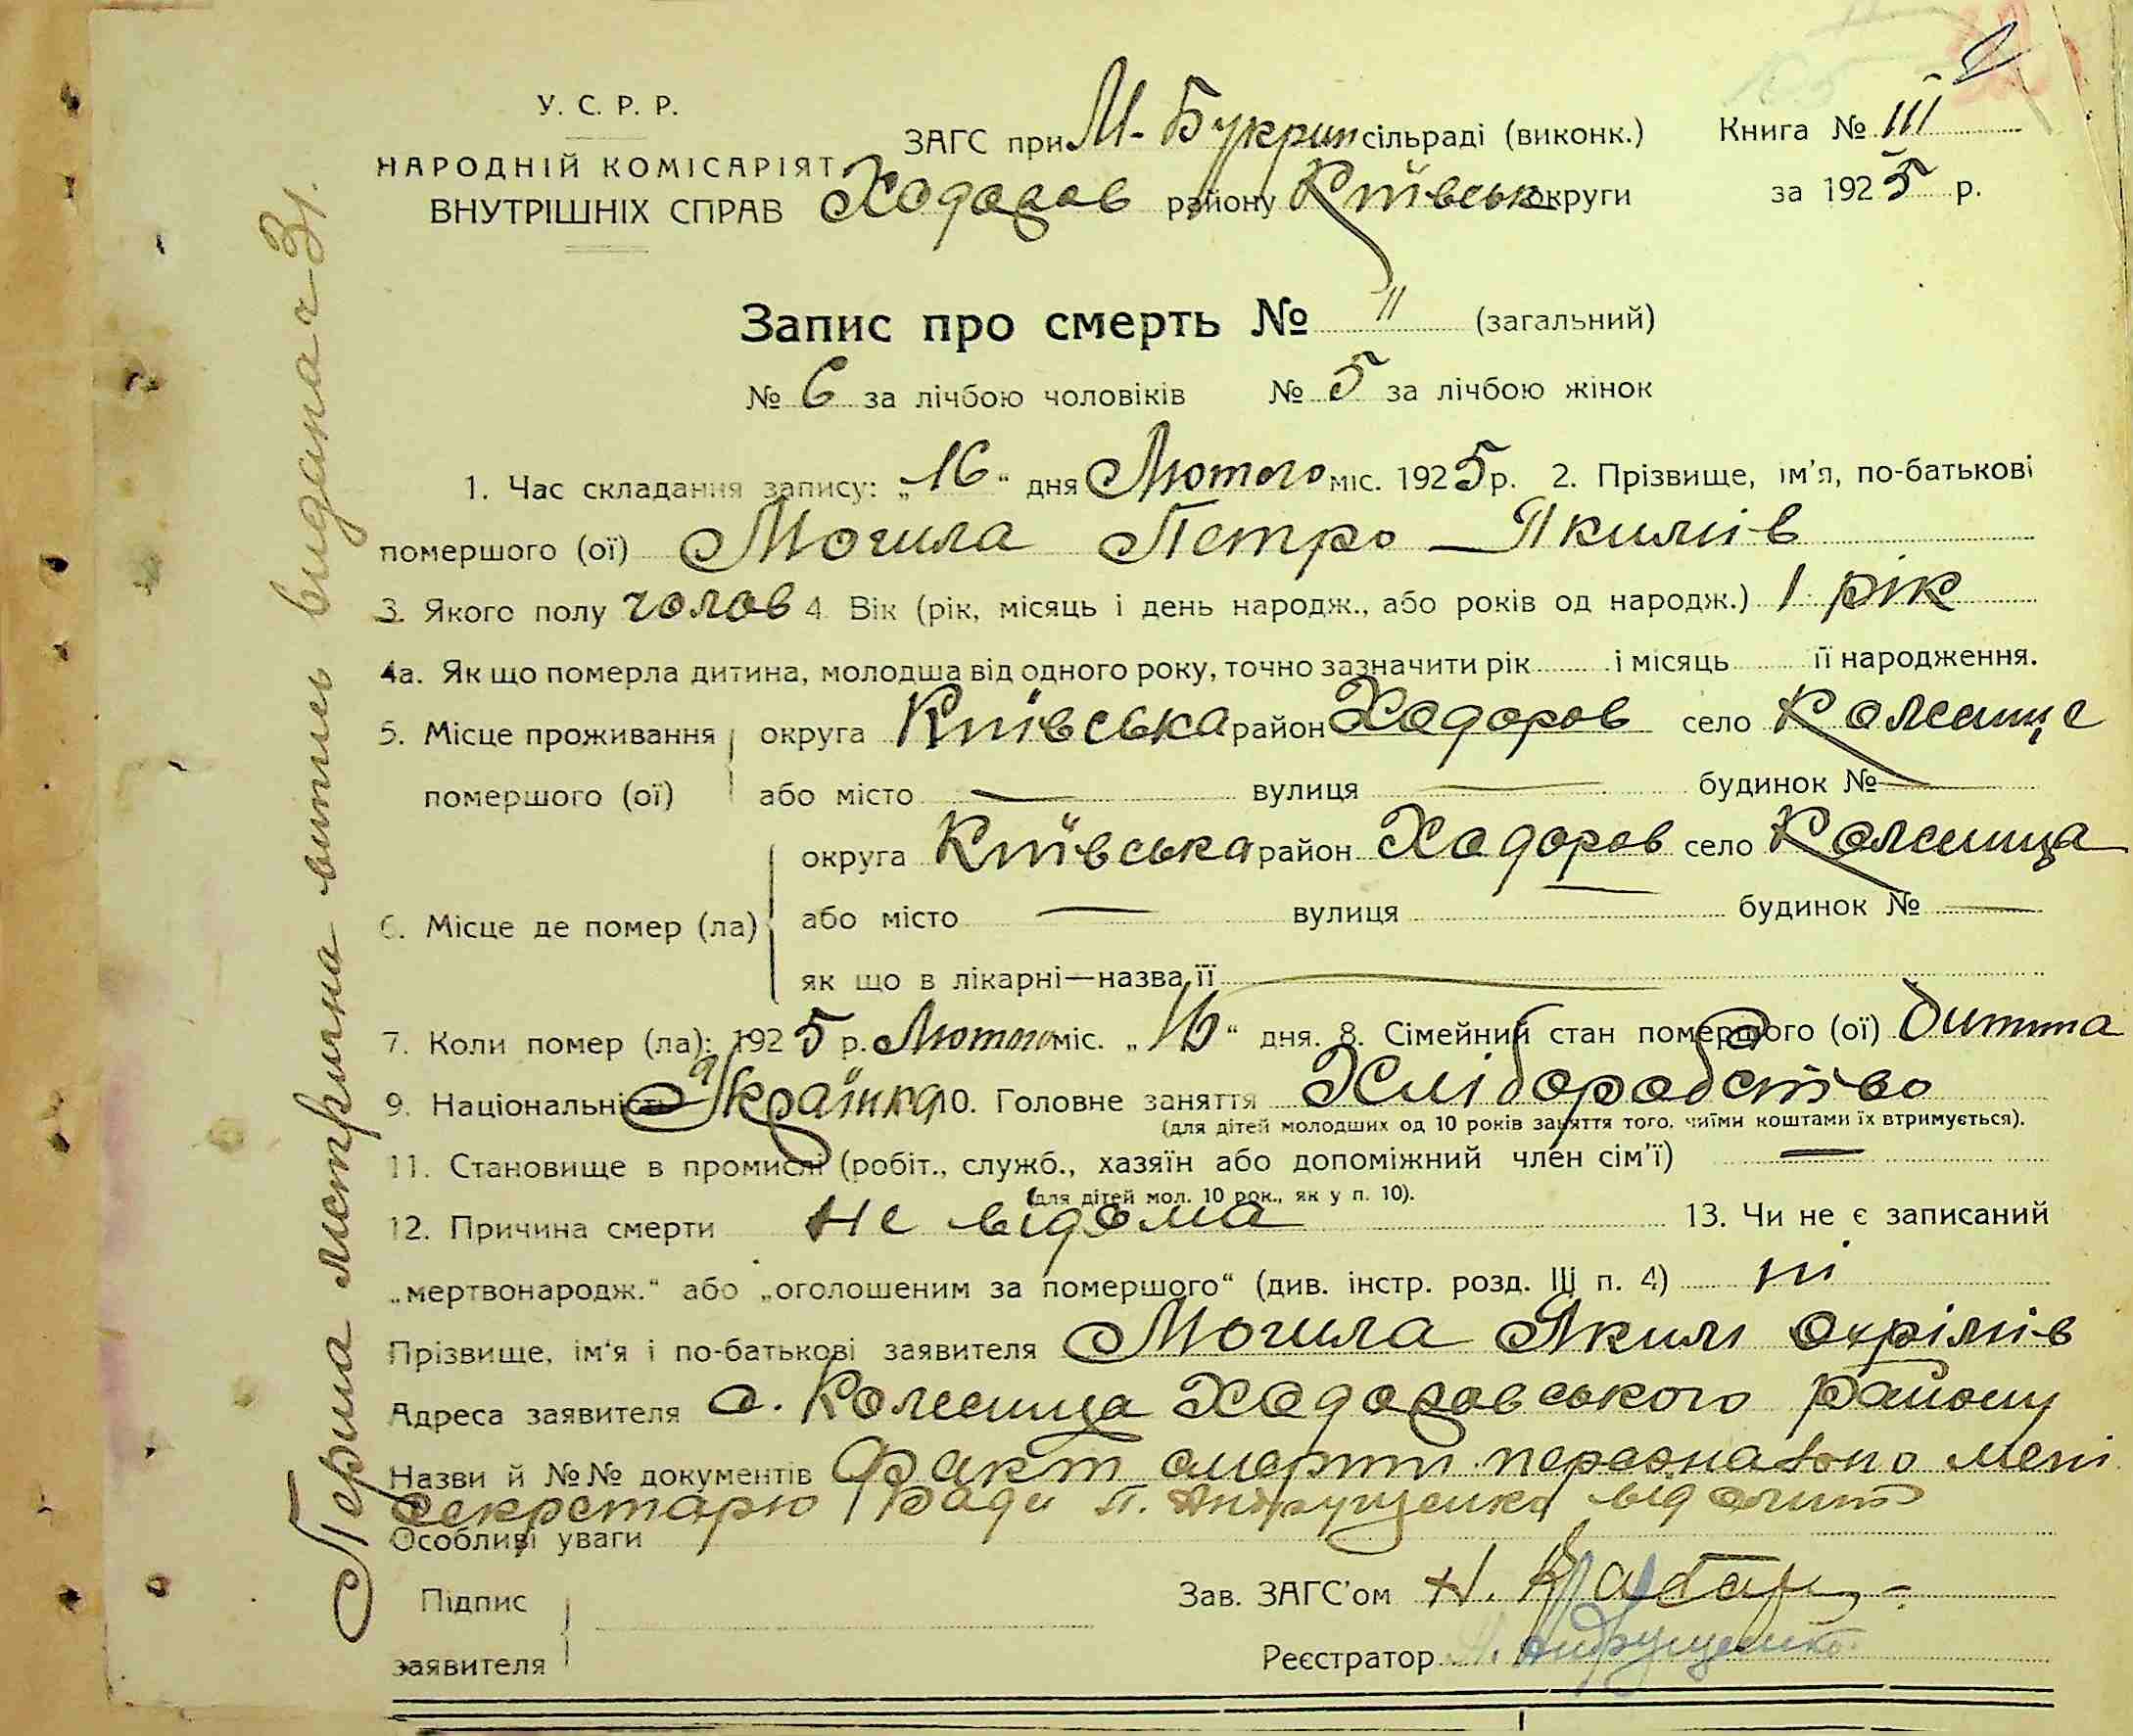 У. С. Р. Р.
НАРОДНІЙ КОМІСАРІЯТ
ВНУТРІШНІХ СПРАВ
ЗАГС при М-Букрин сільраді (виконк.)
Ходоров району Київськ округи
Книга № III
за 1925 р.
Запис про смерть № 11 (загальний)
№ 6 за лічбою чоловіків № 5 за лічбою жінок
1. Час складання запису: „16“ дня Лютого міс. 1925 р. 2. Прізвище, ім'я, по-батькові
помершого (ої) Могила Петро Якимів
3. Якого полу чолов 4. Вік (рік, місяць і день народж., або років од народж.) 1 рік
4а. Як що померла дитина, молодша від одного року, точно зазначити рік і місяць її народження.
5. Місце проживання помершого (ої) округа Київська район Ходоров село Колесище
або місто — вулиця — будинок № —
6. Місце де помер (ла) округа Київська район Ходоров село Колесища
або місто — вулиця будинок № —
як що в лікарні—назва її —
7. Коли помер (ла): 1925 р. Лютого міс. „16“ дня. 8. Сімейний стан помершого (ої) Дитина
9. Національність Українка 10. Головне заняття Хліборобство
(для дітей молодших од 10 років заняття того, чиїми коштами їх втримується).
11. Становище в промислі (робіт., служб., хазяїн або допоміжний член сім'ї) —
(для дітей мол. 10 рок., як у п. 10).
12. Причина смерти Не відома 13. Чи не є записаний
„мертвонародж.“ або „оголошеним за помершого“ (див. інстр. розд. III п. 4) ні
Прізвище, ім'я і по-батькові заявителя Могила Яким Охрімів
Адреса заявителя с. Колесища Ходоровського району
Назви й №№ документів Факт смерти персонально мені
секретарю ради П. Андрущенко
Особливі уваги
Підпис заявителя
Зав. ЗАГС'ом Н.
Реєстратор П. Андрущенко
Перша метрична витись видана 31.